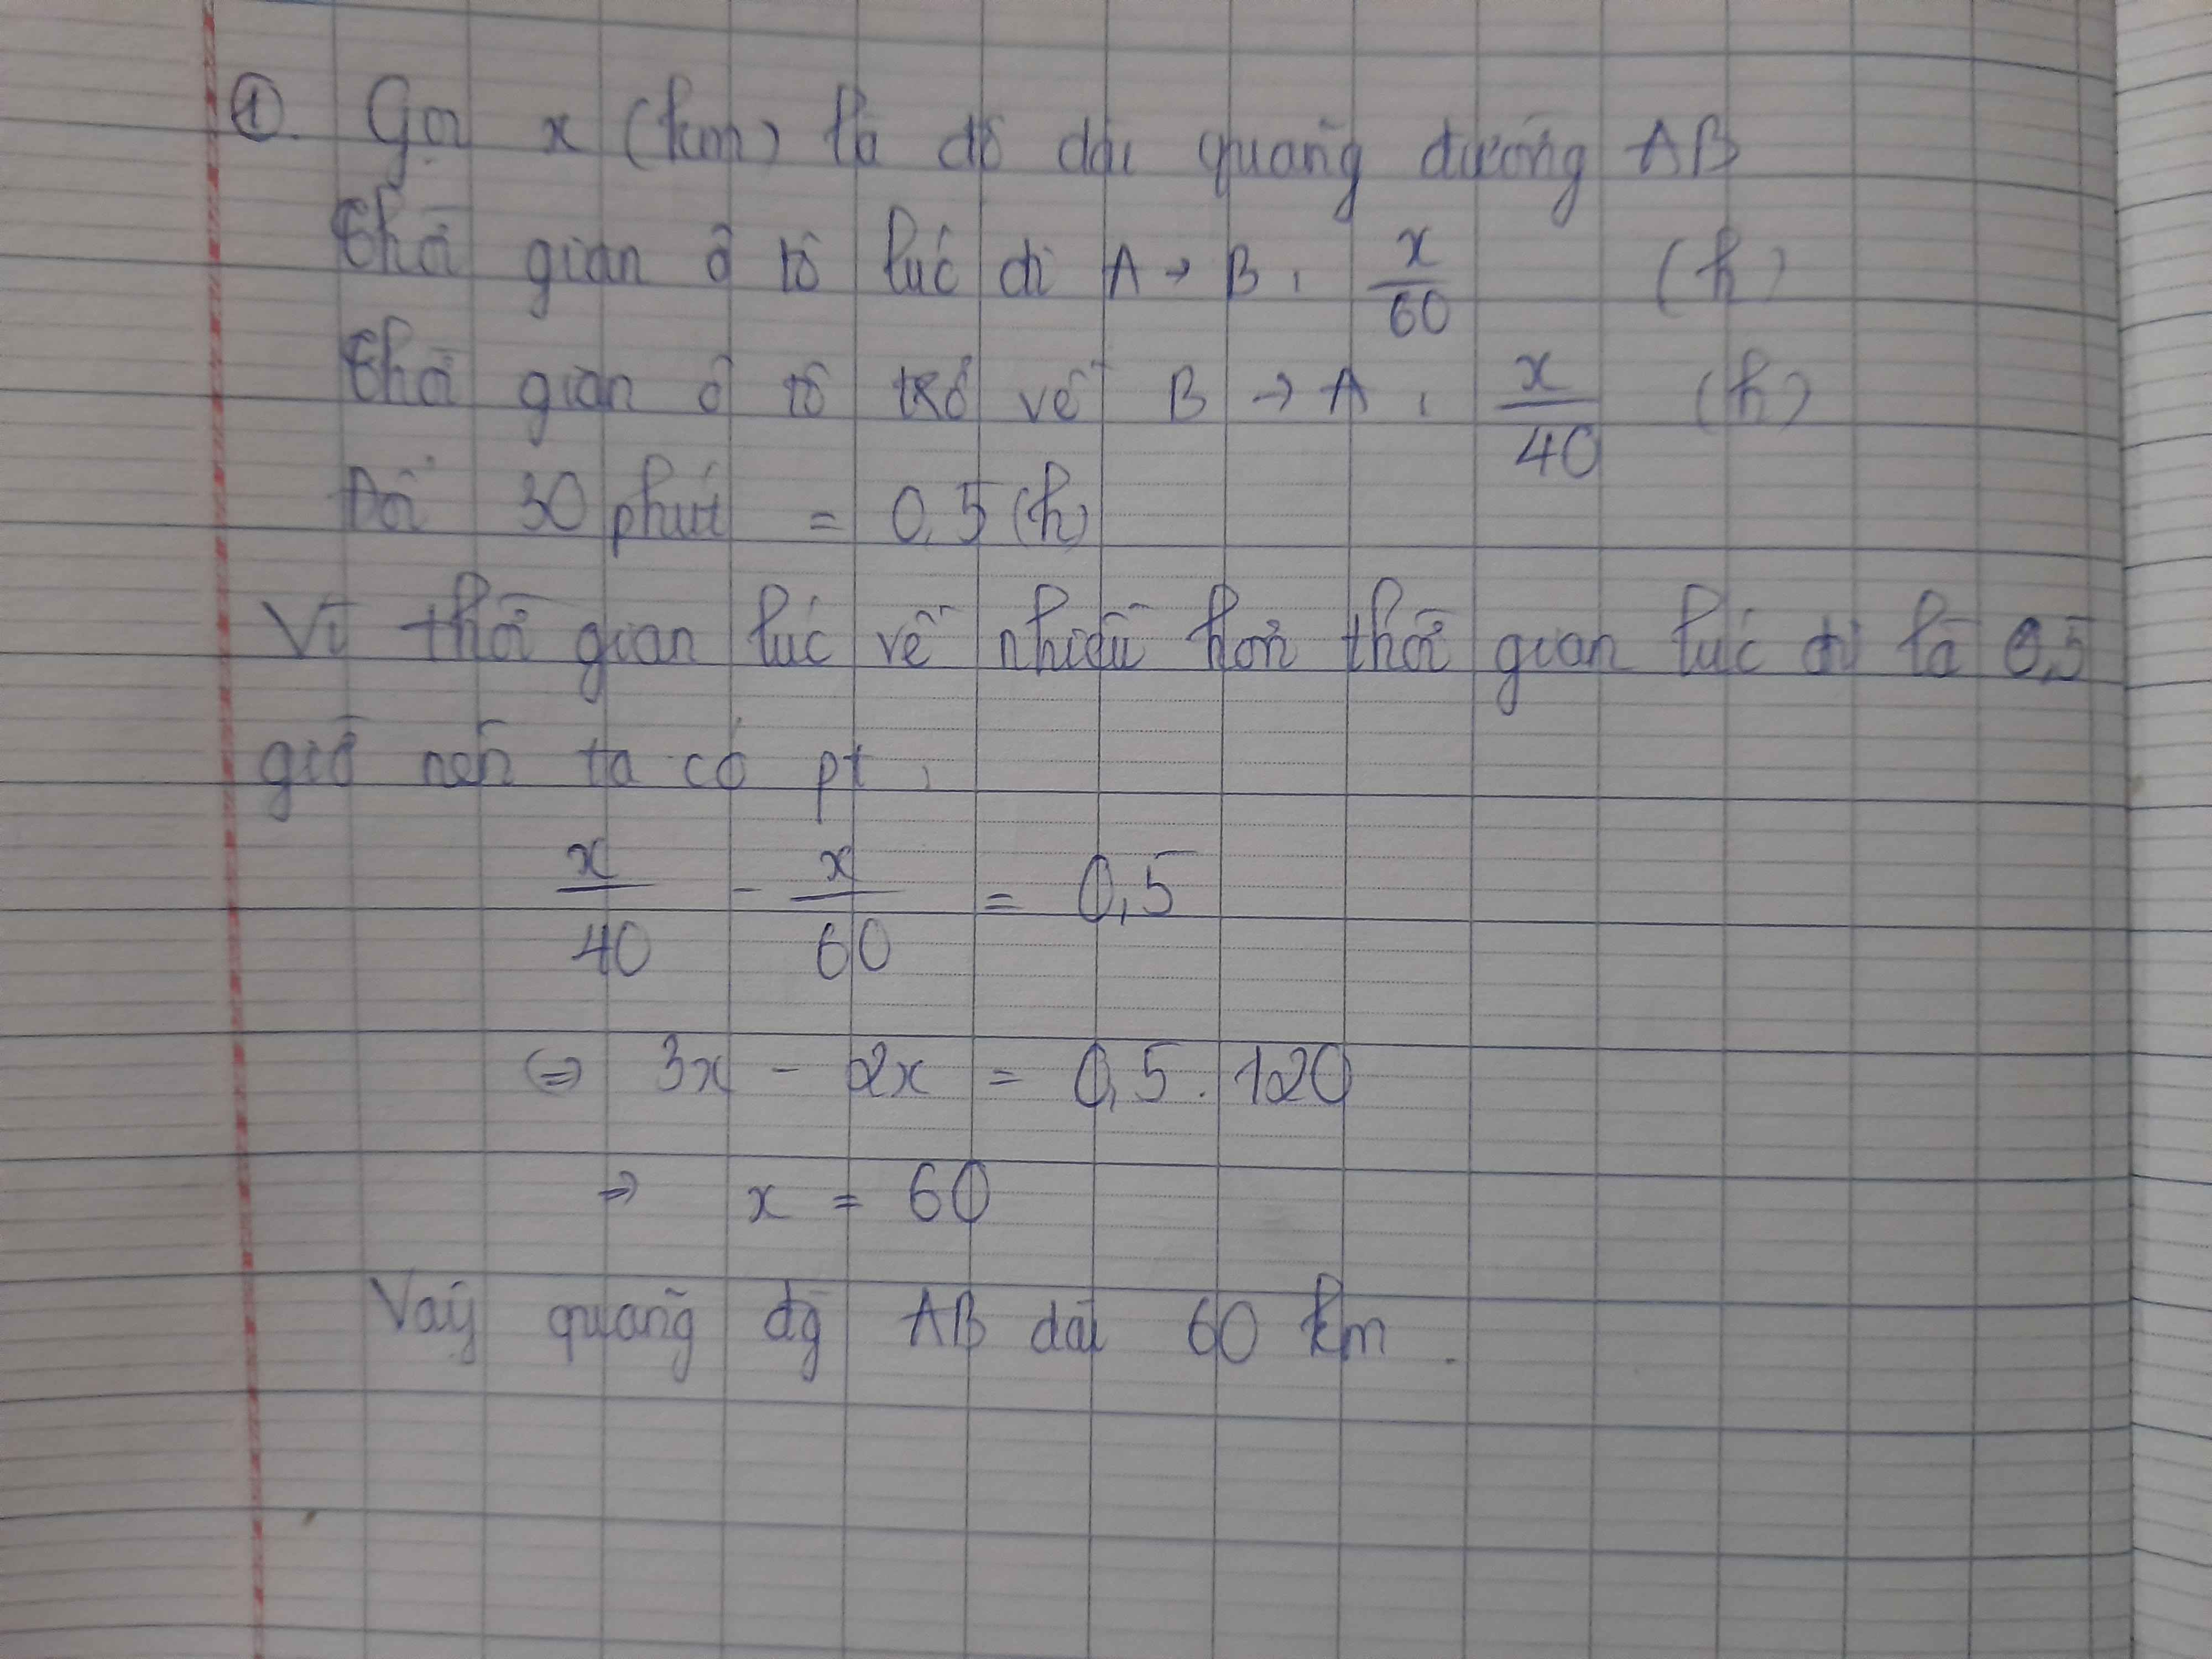 ① Gọi x (km) là độ dài quãng đường AB
Thời gian ô tô lúc đi A → B : x/60 (h)
Thời gian ô tô trở về B → A : x/40 (h)
Đổi 30 phút = 0,5 (h)
Vì thời gian lúc về nhiều hơn thời gian lúc đi là 0,5
giờ nên ta có pt :
x/40 - x/60 = 0,5
⇔ 3x - 2x = 0,5 . 120
⇒ x = 60
Vậy quãng đg AB dài 60 km .